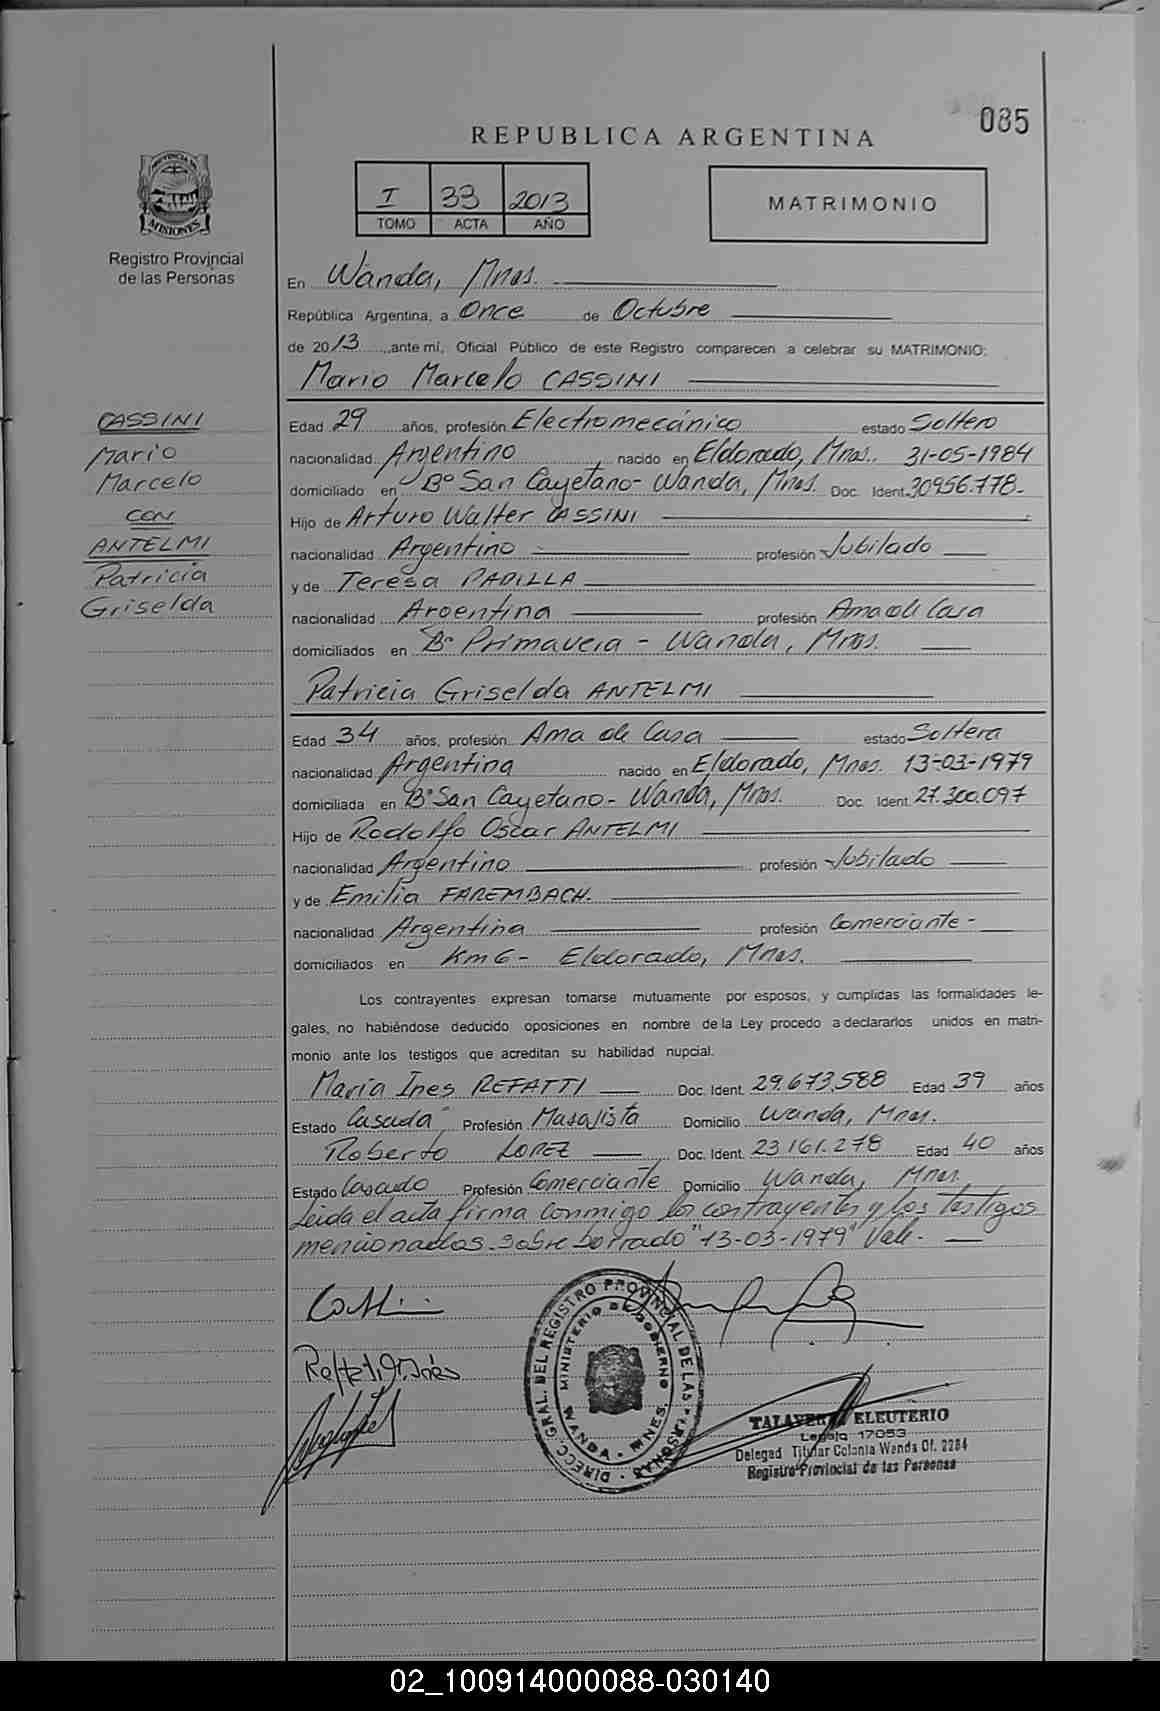 085
REPUBLICA ARGENTINA
PROVINCIA DE
MISIONES
Registro Provincial
de las Personas
I 33 2013
TOMO ACTA AÑO
MATRIMONIO
En Wanda, Mnes.
República Argentina, a Once de Octubre
de 2013, ante mí, Oficial Público de este Registro comparecen a celebrar su MATRIMONIO:
Mario Marcelo CASSINI
CASSINI
Mario
Marcelo
CON
ANTELMI
Patricia
Griselda
Edad 29 años, profesión Electromecánico estado Soltero
nacionalidad Argentino, nacido en Eldorado, Mnes. 31-05-1984
domiciliado en Bº San Cayetano- Wanda, Mnes. Doc. Ident. 30956.778-
Hijo de Arturo Walter CASSINI
nacionalidad Argentino profesión Jubilado
y de Teresa PADILLA
nacionalidad Argentina profesión Ama de Casa
domiciliados en Bº Primavera - Wanda, Mnes.
Patricia Griselda ANTELMI
Edad 34 años, profesión Ama de Casa estado Soltera
nacionalidad Argentina nacido en Eldorado, Mnes. 13-03-1979
domiciliada en Bº San Cayetano- Wanda, Mnes. Doc. Ident. 27.300.097
Hijo de Rodolfo Oscar ANTELMI
nacionalidad Argentino profesión Jubilado
y de Emilia FAREMBACH.
nacionalidad Argentina profesión Comerciante-
domiciliados en Km 6- Eldorado, Mnes.
Los contrayentes expresan tomarse mutuamente por esposos, y cumplidas las formalidades le-
gales, no habiéndose deducido oposiciones en nombre de la Ley procedo a declararlos unidos en matri-
monio ante los testigos que acreditan su habilidad nupcial.
María Ines REFATTI Doc. Ident. 29.673.588 Edad 39 años
Estado Casada Profesión Masajista Domicilio Wanda, Mnes.
Roberto LOPEZ Doc. Ident. 23 161.278 Edad 40 años
Estado Casado Profesión Comerciante Domicilio Wanda, Mnes.
Leida el acta firma conmigo los contrayentes y los testigos
mencionados. Sobre borrado "13-03-1979" Vale.
DIRECC. GRAL. DEL REGISTRO PROVINCIAL DE LAS PERSONAS
MINISTERIO DE GOBIERNO
WANDA - MNES.
TALAVERA ELEUTERIO
Legajo 17053
Delegad Titular Colonia Wanda Of. 2284
Registro Provincial de las Personas
02_100914000088-030140